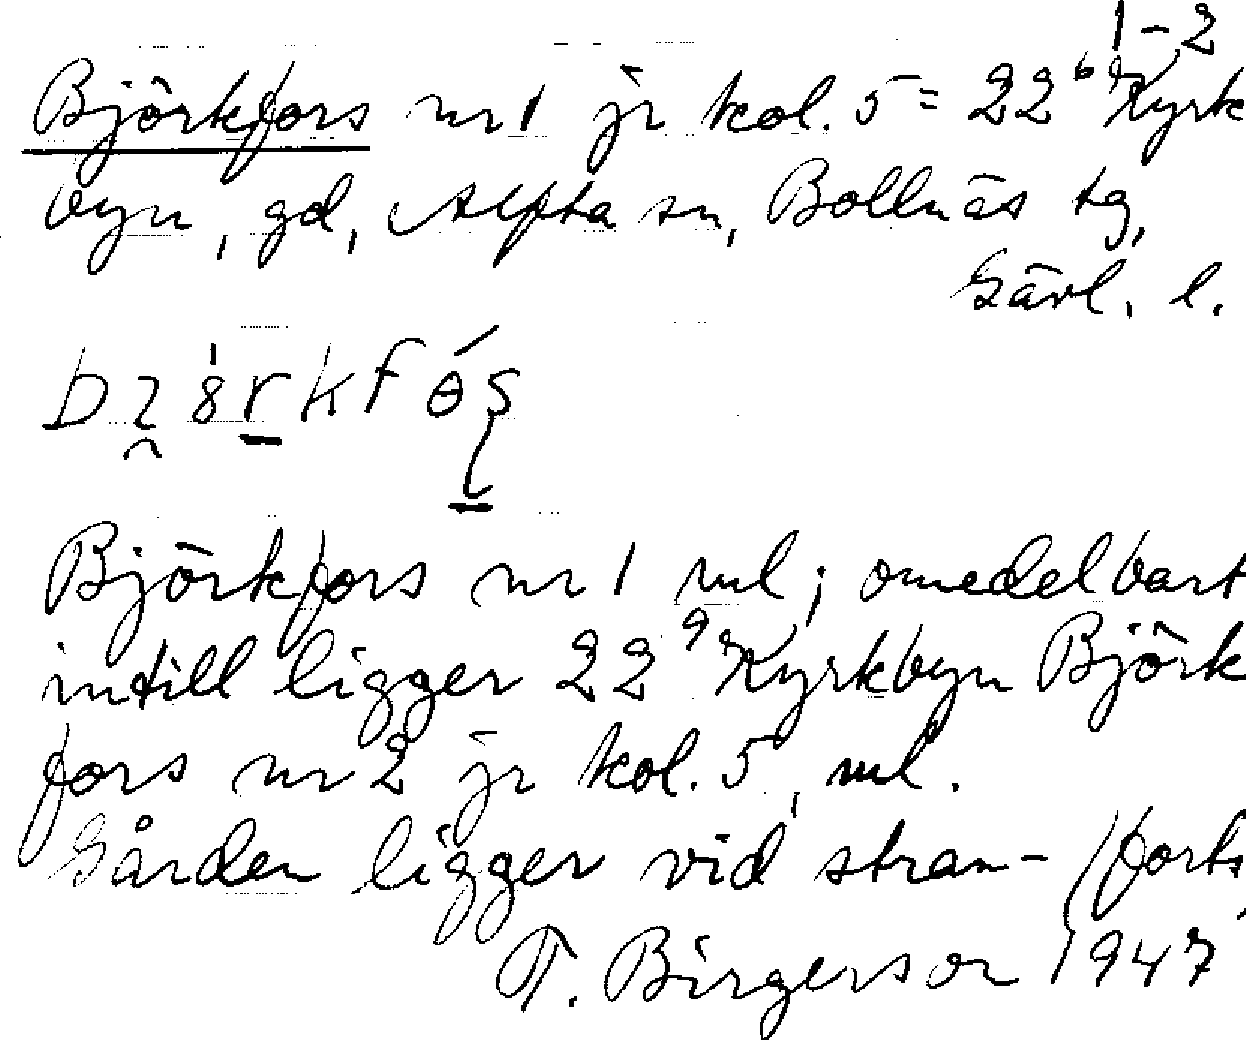 1-2
Björkfors nr 1 jr kol. 5 = 22⁶ Kyrk
byn, gd, Alfta sn, Bollnäs tg,
Gävl. l.
Björkfors nr 1 ml; omedelbart
intill ligger 22⁹ Kyrkbyn Björk
fors nr 2 jr kol. 5, ml.
Gården ligger vid stran- (forts
T. Birgerson 1947